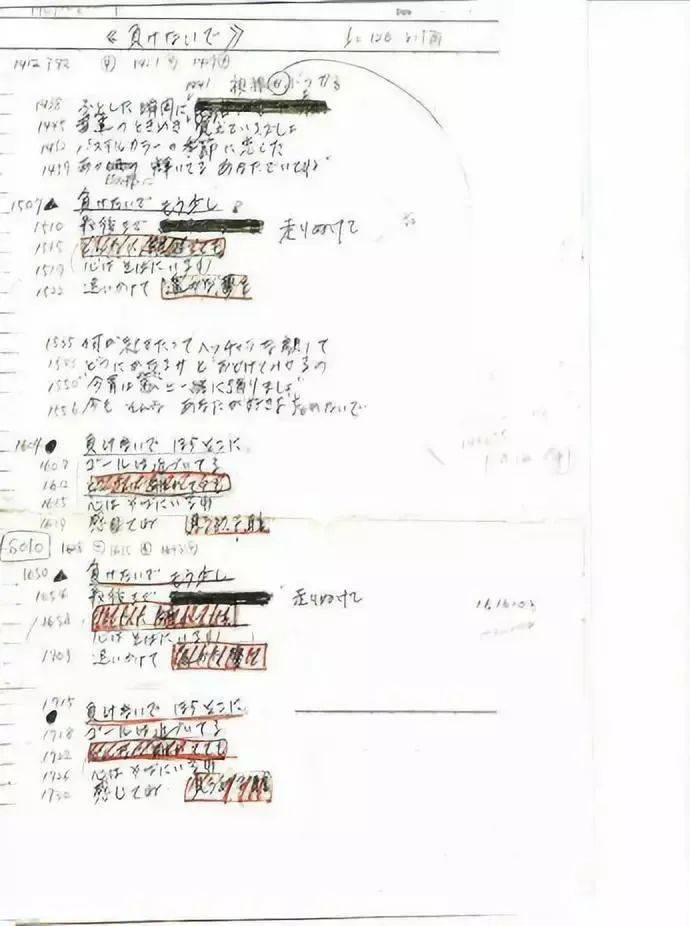 《負けないで》
1438 ふとした瞬間に 視線がぶつかる
1445 幸運のときめき 覚えているでしょ
1452 パステルカラーの季節に恋した
1459 あの日の 輝いてる あなたでいてね
1507 ▲ 負けないで もう少し
1510 最後まで 走りぬけて
1515 どんなに離れてても
1519 心は そばにいるわ
1522 追いかけて 遥かな夢を
1535 何が起きたって ヘッチャラな顔して
どうにかなるサ と おどけてみせるの
1550 "今宵は私と一緒に踊りましょ"
1556 今も そんな あなたが好きよ 忘れないで
1604 ● 負けないで ほらそこに
1607 ゴールは近づいてる
1612 どんなに離れてても
1615 心は そばにいるわ
1619 感じてね 見つめる瞳
5010
1650 ▲ 負けないで もう少し
1654 最後まで 走りぬけて
1658 どんなに離れてても
心は そばにいるわ
1709 追いかけて 遥かな夢を
1715 ● 負けないで ほらそこに
1718 ゴールは近づいてる
1722 どんなに離れてても
1726 心は そばにいるわ
1730 感じてね 見つめる瞳